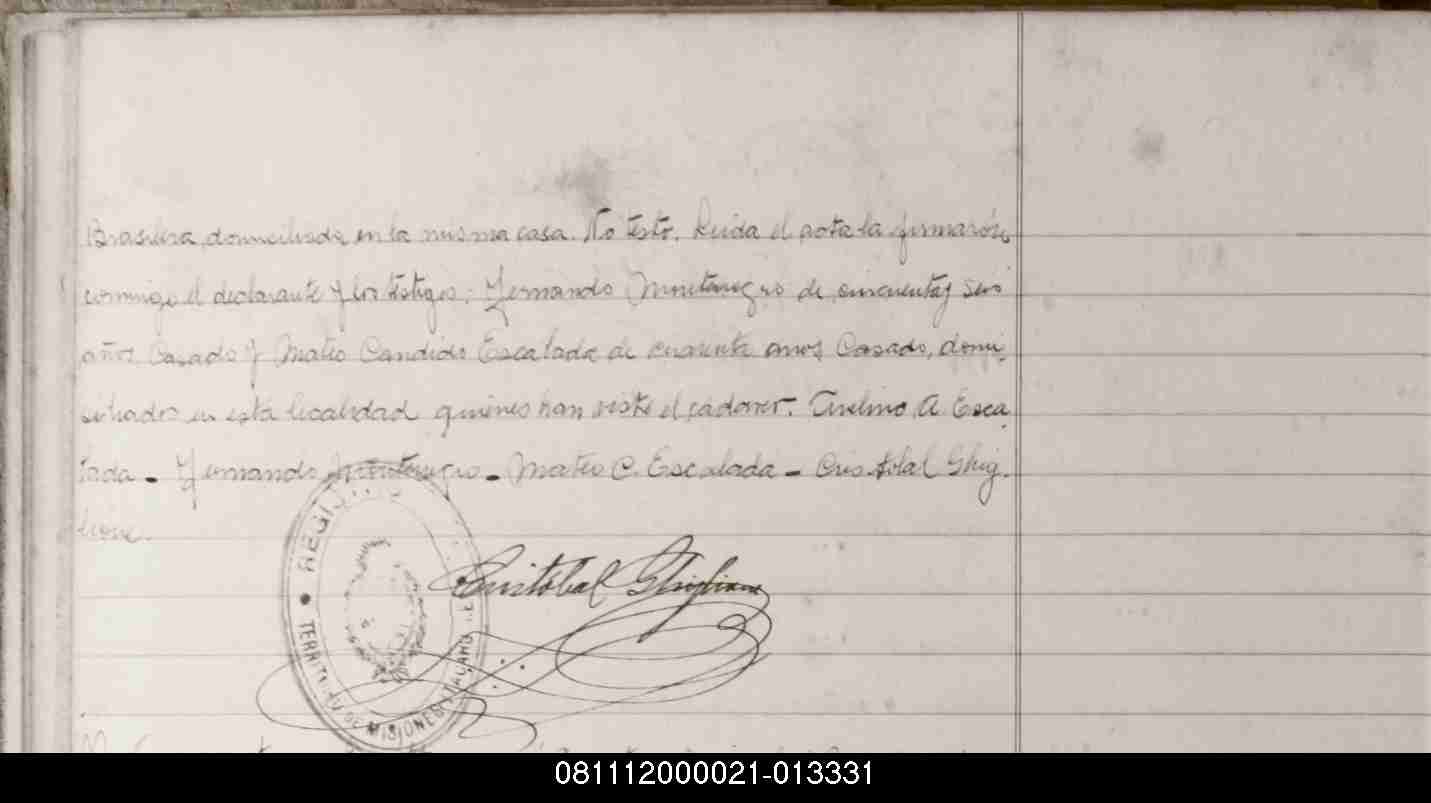 Brasilera, domiciliada en la misma casa. No testó. Leída el acta la firmarón
conmigo el declarante y los testigos; Fernando Montenegro de cincuenta y seis
años Casado y Mateo Candido Escalada de cuarenta anos Casado, domi-
ciliados en esta localidad quienes han visto el cadaver. Avelino A. Esca-
lada - Fernando Montenegro - Mateo C. Escalada - Cristobal Ghig-
lione.
Cristobal Ghiglione
TERRITORIO DE MISIONES
081112000021-013331